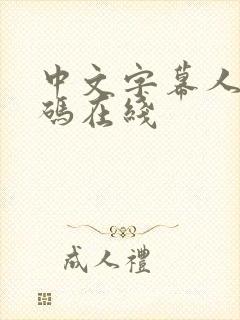 中文字幕人
碼在綫
成人禮